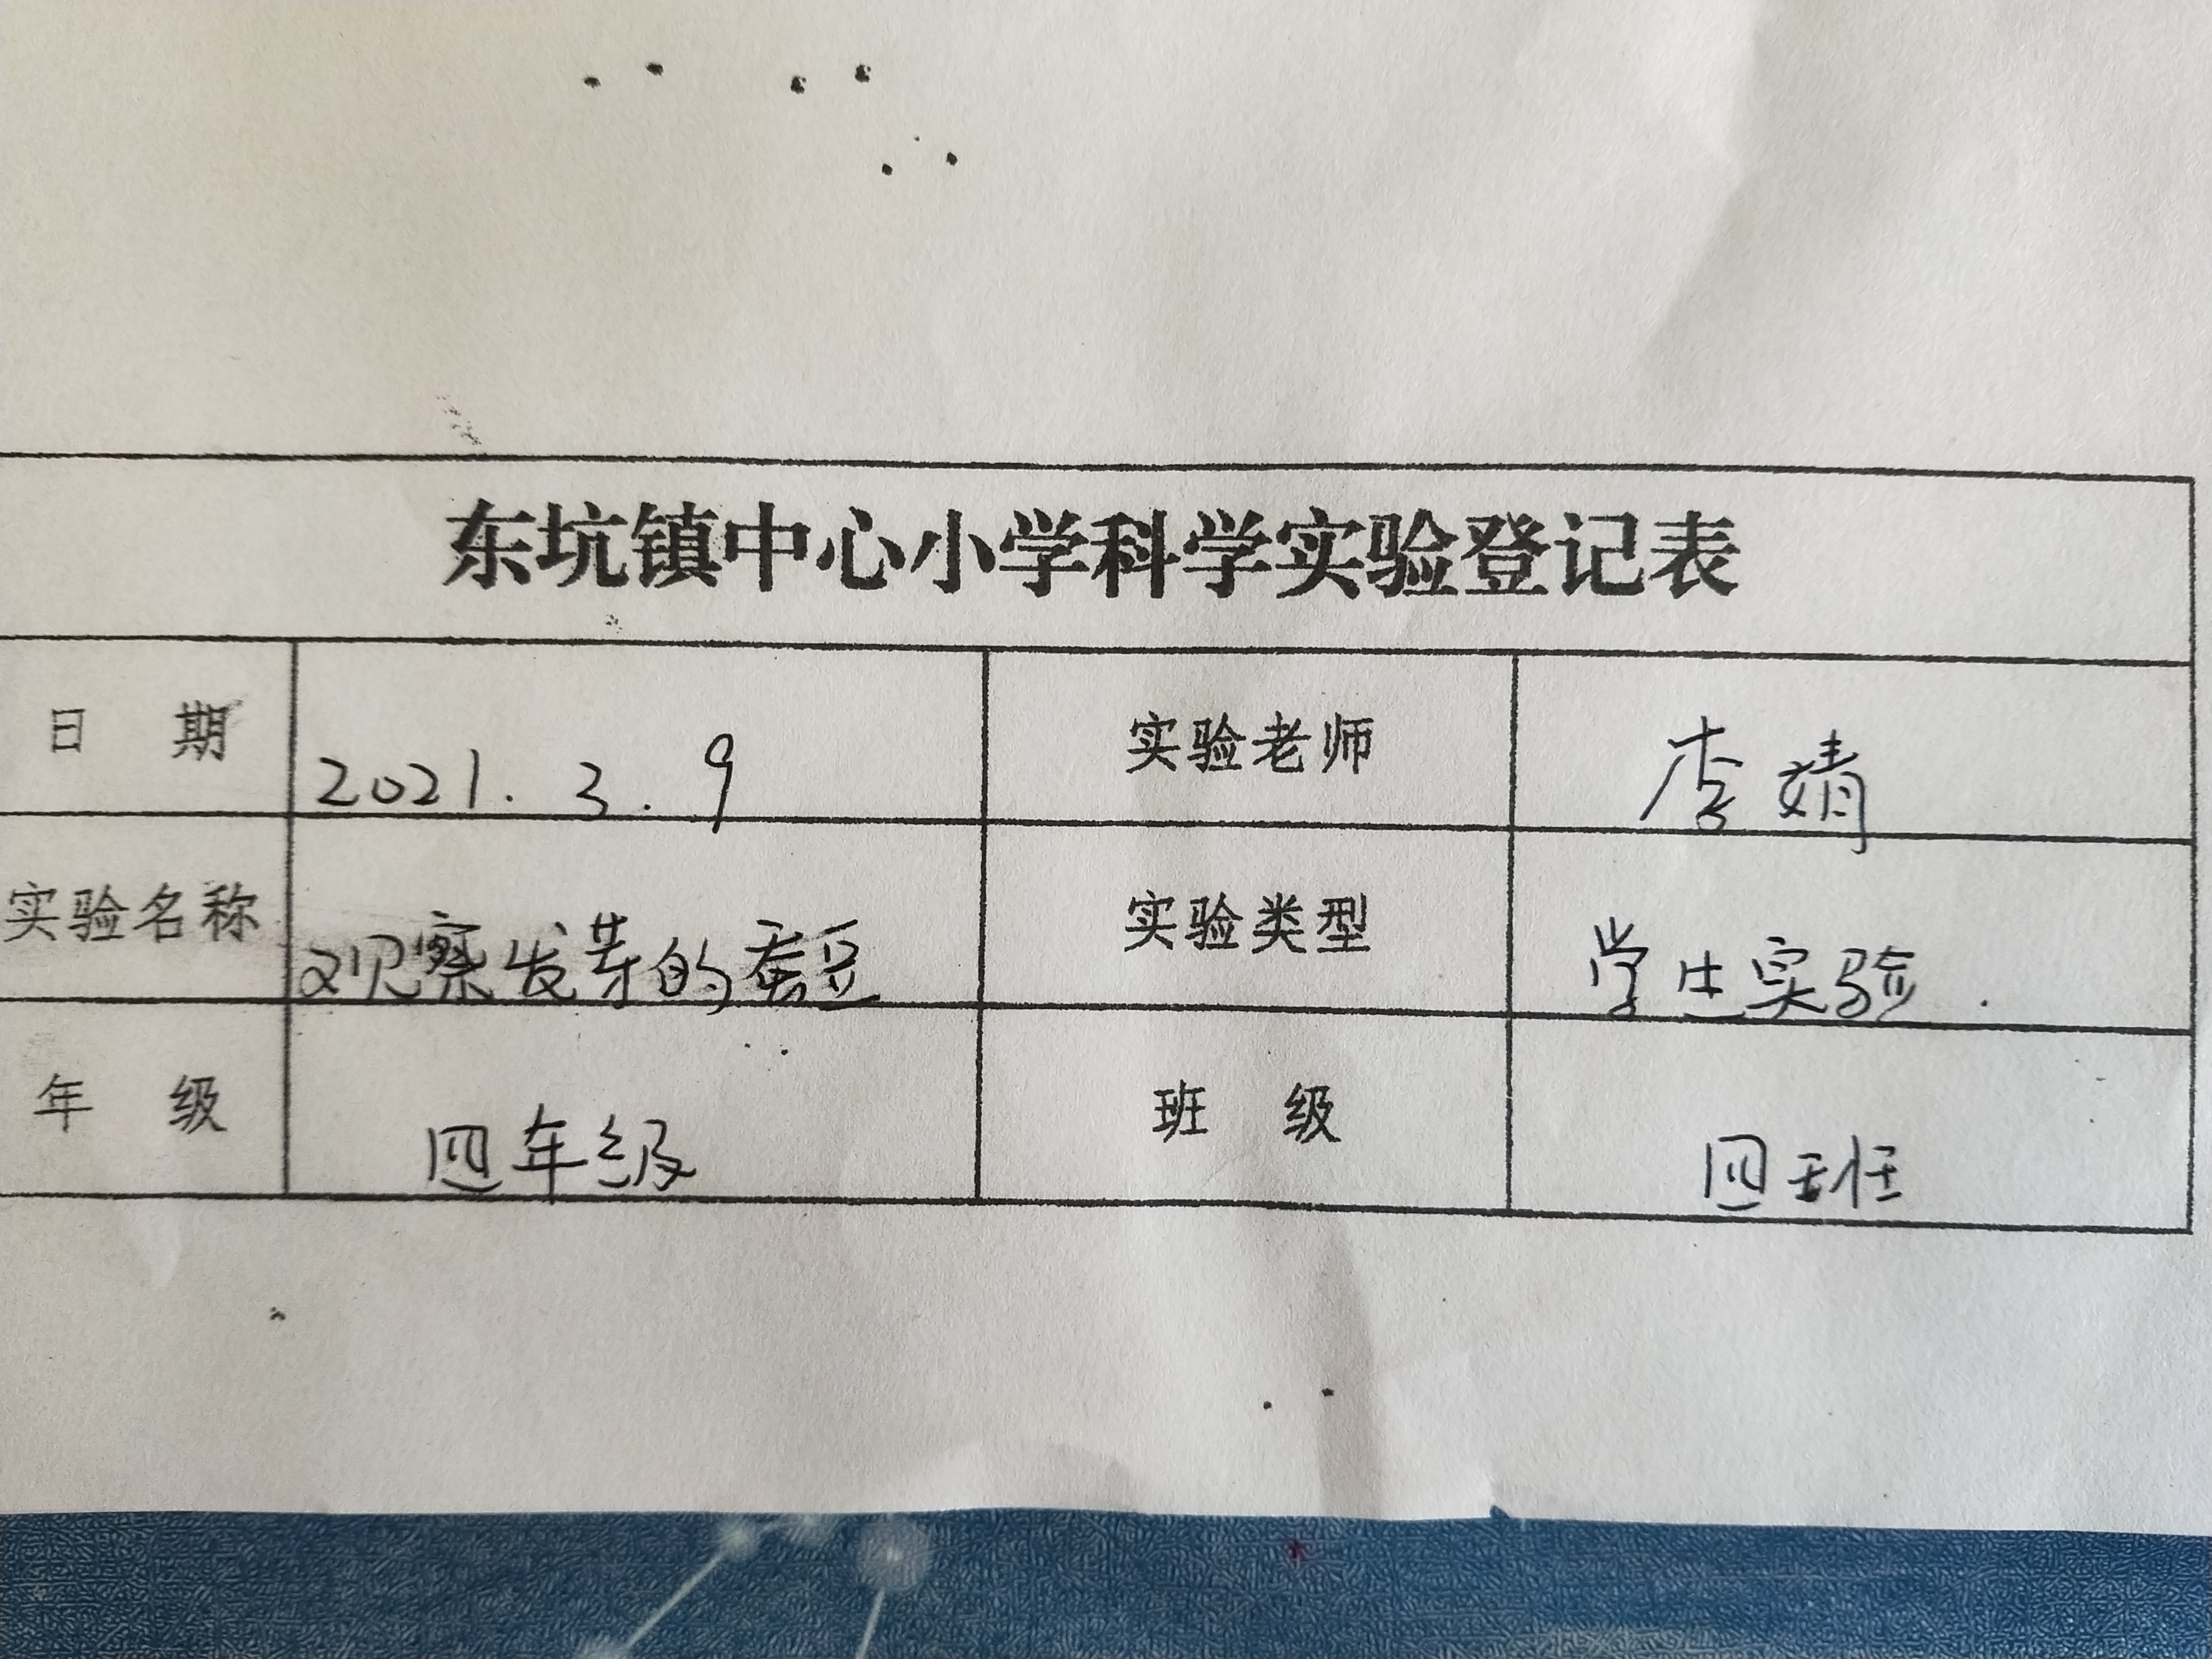 东坑镇中心小学科学实验登记表
日 期 2021.3.9 实验老师 李婧
实验名称 观察发芽的蚕豆 实验类型 学生实验.
年 级 四年级 班 级 四班